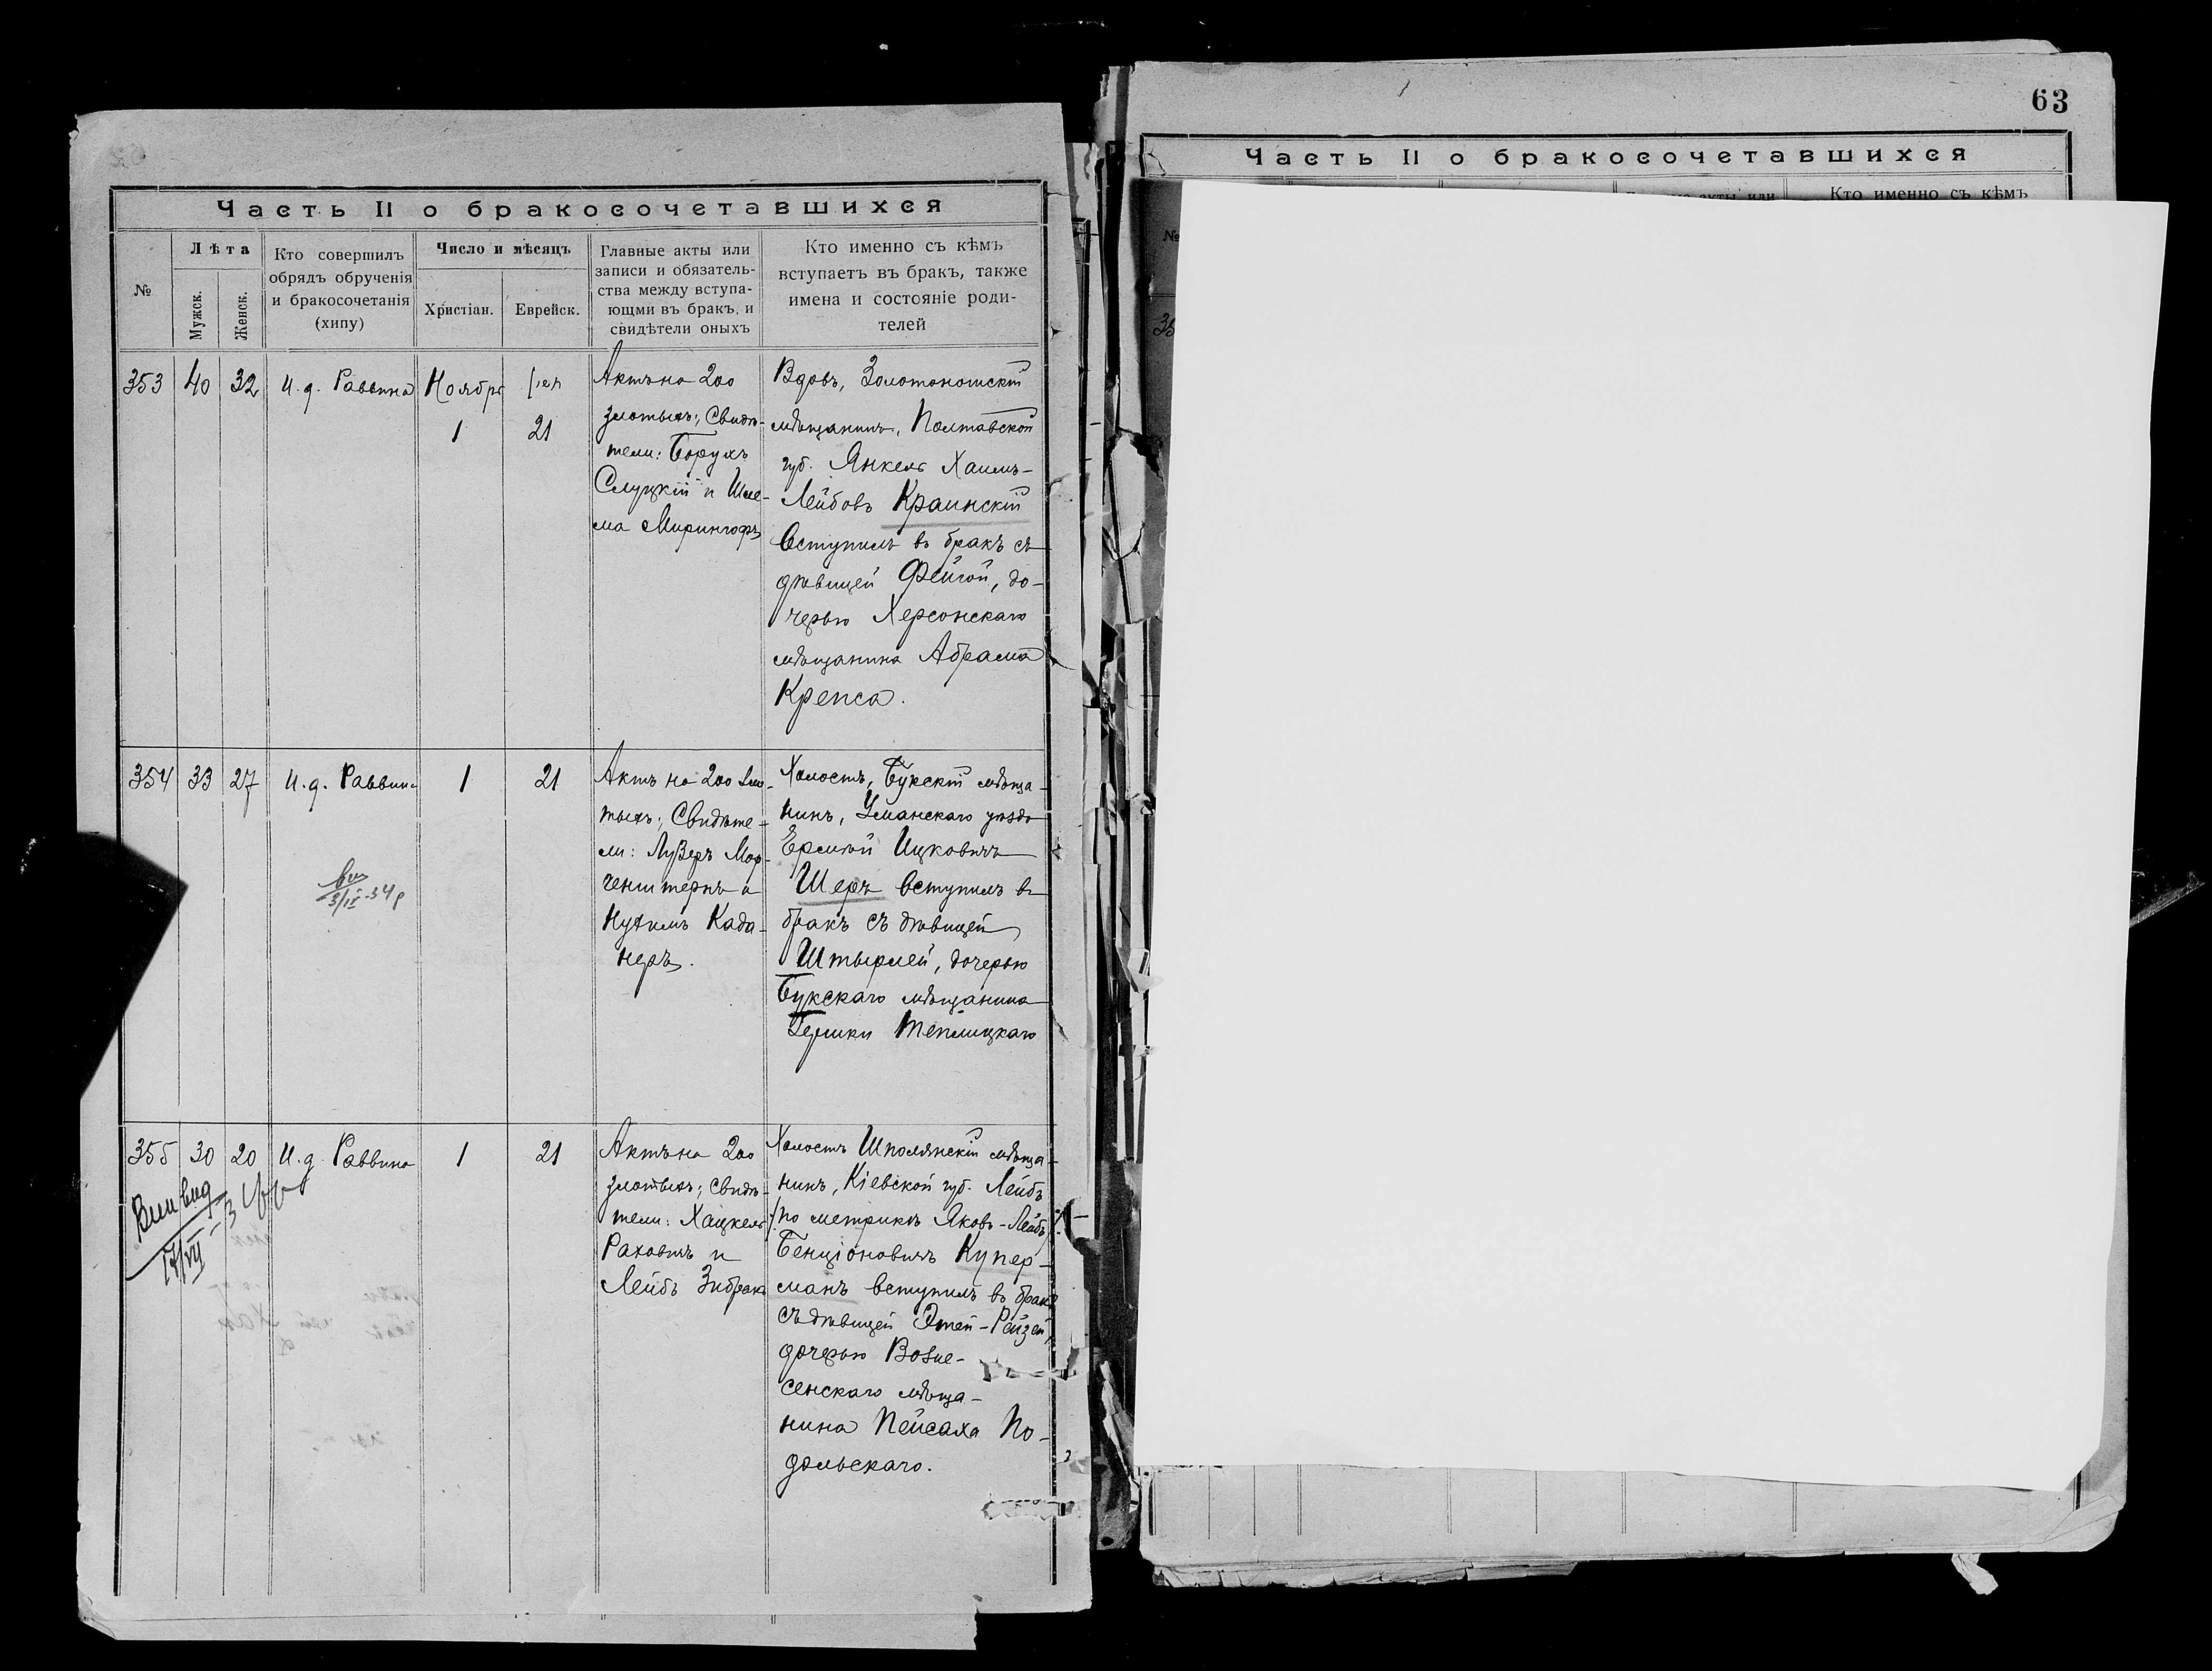 63
Часть II о бракосочетавшихся
Часть II о бракосочетавшихся
№
Лѣта
Мужск.
Женск.
Кто совершилъ
обрядъ обрученія
и бракосочетанія
(хипу)
Число и мѣсяцъ
Христіан.
Еврейск.
Главные акты или
записи и обязатель-
ства между вступа-
ющми въ бракъ, и
свидѣтели оныхъ
Кто именно съ кѣмъ
вступаетъ въ брак, также
имена и состояніе роди-
телей
353
40
32
И. д. Раввина
Ноября
1
21
Актъ на 200
злотыхъ; Свидѣ-
тели: Борухъ
Слуцкій и Шле-
ма Мирингофъ
Вдовъ, Золотоношскій
мѣщанинъ, Полтавской
губ. Янкель Хаимъ-
Лейбовъ Краинскій
вступилъ въ бракъ съ
дѣвицей Фейгой, до-
черью Херсонскаго
мѣщанина Абрама
Крепса.
354
33
27
И. д. Раввина
1
21
Актъ на 200 зло-
тыхъ; Свидѣте-
ли: Лузеръ Мор-
генштернъ и
Нухимъ Када-
неръ.
Холостъ, Букскій мѣща-
нинъ, Уманскаго уѣзда
Ицковичъ
Шеръ вступилъ въ
бракъ съ дѣвицей
Штырлей, дочерью
Букскаго мѣщанина
Гершки Теплицкаго
355
30
20
И. д. Раввина
1
21
Актъ на 200
злотыхъ; Свидѣ-
тели: Хацкель
Раховичъ и
Лейбъ
Холостъ Шполянскій мѣща-
нинъ, Кіевской губ. Лейбъ
/по метрикѣ Яковъ-Лейбъ/
Бенціоновичъ Купер-
манъ вступилъ въ бракъ
съ дѣвицей Этей-Рейзей,
дочерью Возне-
сенскаго мѣща-
нина Пейсаха По-
дольскаго.
Часть II о бракосочетавшихся
акты или
Кто именно съ кѣмъ
№